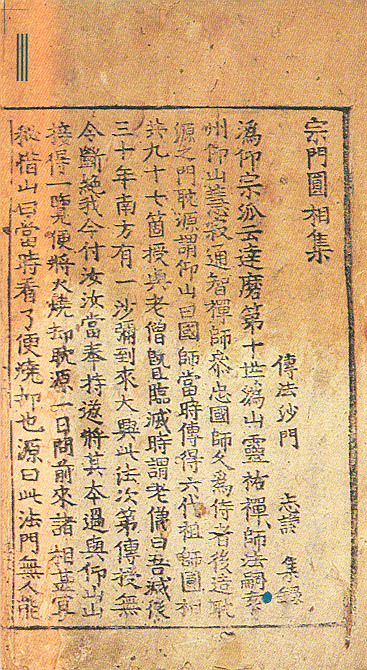 宗門圓相集
傳法沙門 志謙 集錄
潙仰宗派云達磨第十世潙山靈祐禪師法嗣袁
州仰山慧寂通智禪師參忠國師久爲侍者後造耽
源之門耽源謂仰山曰國師當時傳得六代祖師圓相
共九十七箇授與老僧旣臨滅時謂老僧曰吾滅後
三十年南方有一沙彌到來大興此法次第傳授無
令斷絶我今付汝汝當奉持遂將其本過與仰山山
接得一覽便將火燒却耽源一日問前來諸相甚冝
秘惜山曰當時看了便燒却也源曰此法門無人能